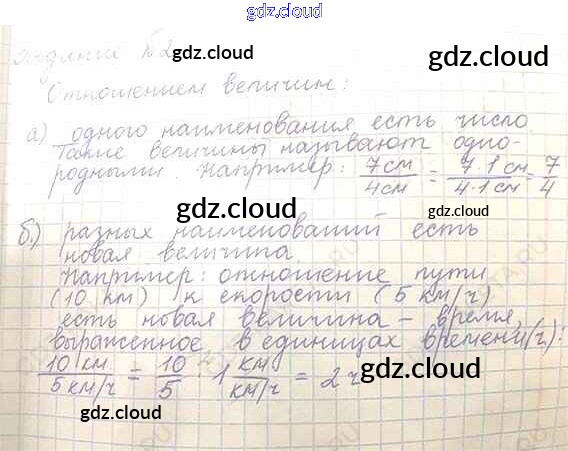 gdz.cloud
Задание №2 gdz.cloud
gdz.cloud
Отношением величин:
а) одного наименования есть число.
Такие величины называют одно-
родными. Например: 7см/4см = 7·1см/4·1см = 7/4
gdz.cloud gdz.cloud
б) разных наименований есть
новая величина.
Например: отношение пути
(10 км) к скорости (5 км/ч)
gdz.cloud gdz.cloud
есть новая величина – время,
выраженное в единицах времени(ч):
10 км/5 км/ч = 10/5 · 1 км/км/ч = 2ч
gdz.cloud
gdz.cloud
gdz.cloud